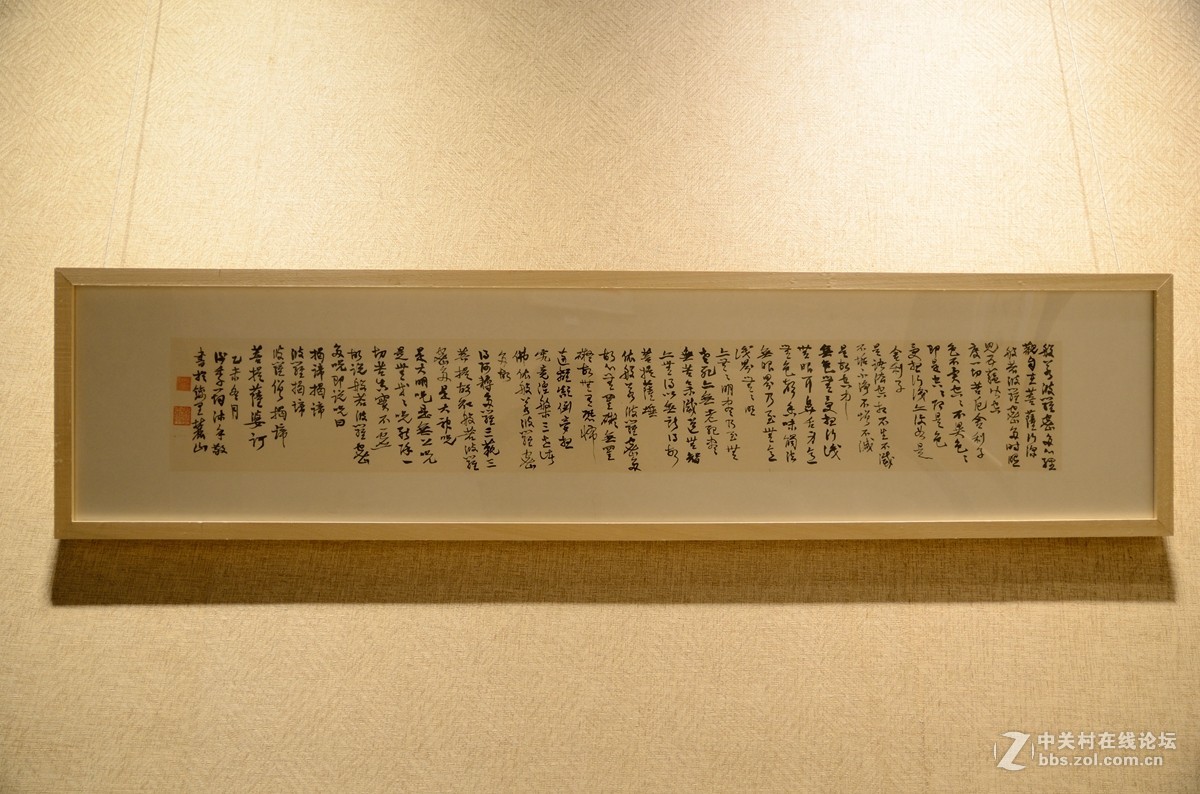 般若波羅蜜多心經
觀自在菩薩行深
般若波羅蜜多時照
見五蘊皆空
度一切苦厄舍利子
色不異空空不異色色
即是空空即是色
受想行識亦復如是
舍利子
是諸法空相不生不滅
不垢不淨不增不減
是故空中
無色無受想行識
無眼耳鼻舌身意
無色聲香味觸法
無眼界乃至無意
識界無無明
亦無無明盡乃至無
老死亦無老死盡
無苦集滅道無智
亦無得以無所得故
菩提薩埵
依般若波羅蜜多
故心無罣礙無罣
礙故無有恐怖
遠離顛倒夢想
究竟涅槃三世諸
佛依般若波羅蜜
多故
得阿耨多羅三藐三
菩提故知般若波羅
蜜多是大神咒
是大明咒是無上咒
是無等等咒能除一
切苦真實不虛
故說般若波羅蜜
多咒即說咒曰
揭諦揭諦
波羅揭諦
波羅僧揭諦
菩提薩婆訶
乙未冬月
沐手敬
書於麓山
中关村在线论坛
bbs.zol.com.cn